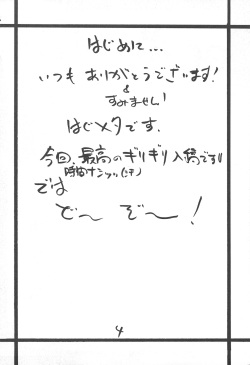 はじめに…
いつも ありがとうございます!
& すみません!
はじメタです.
今回、最高のギリギリ入稿です!!
では
ど〜 ぞ〜!
4